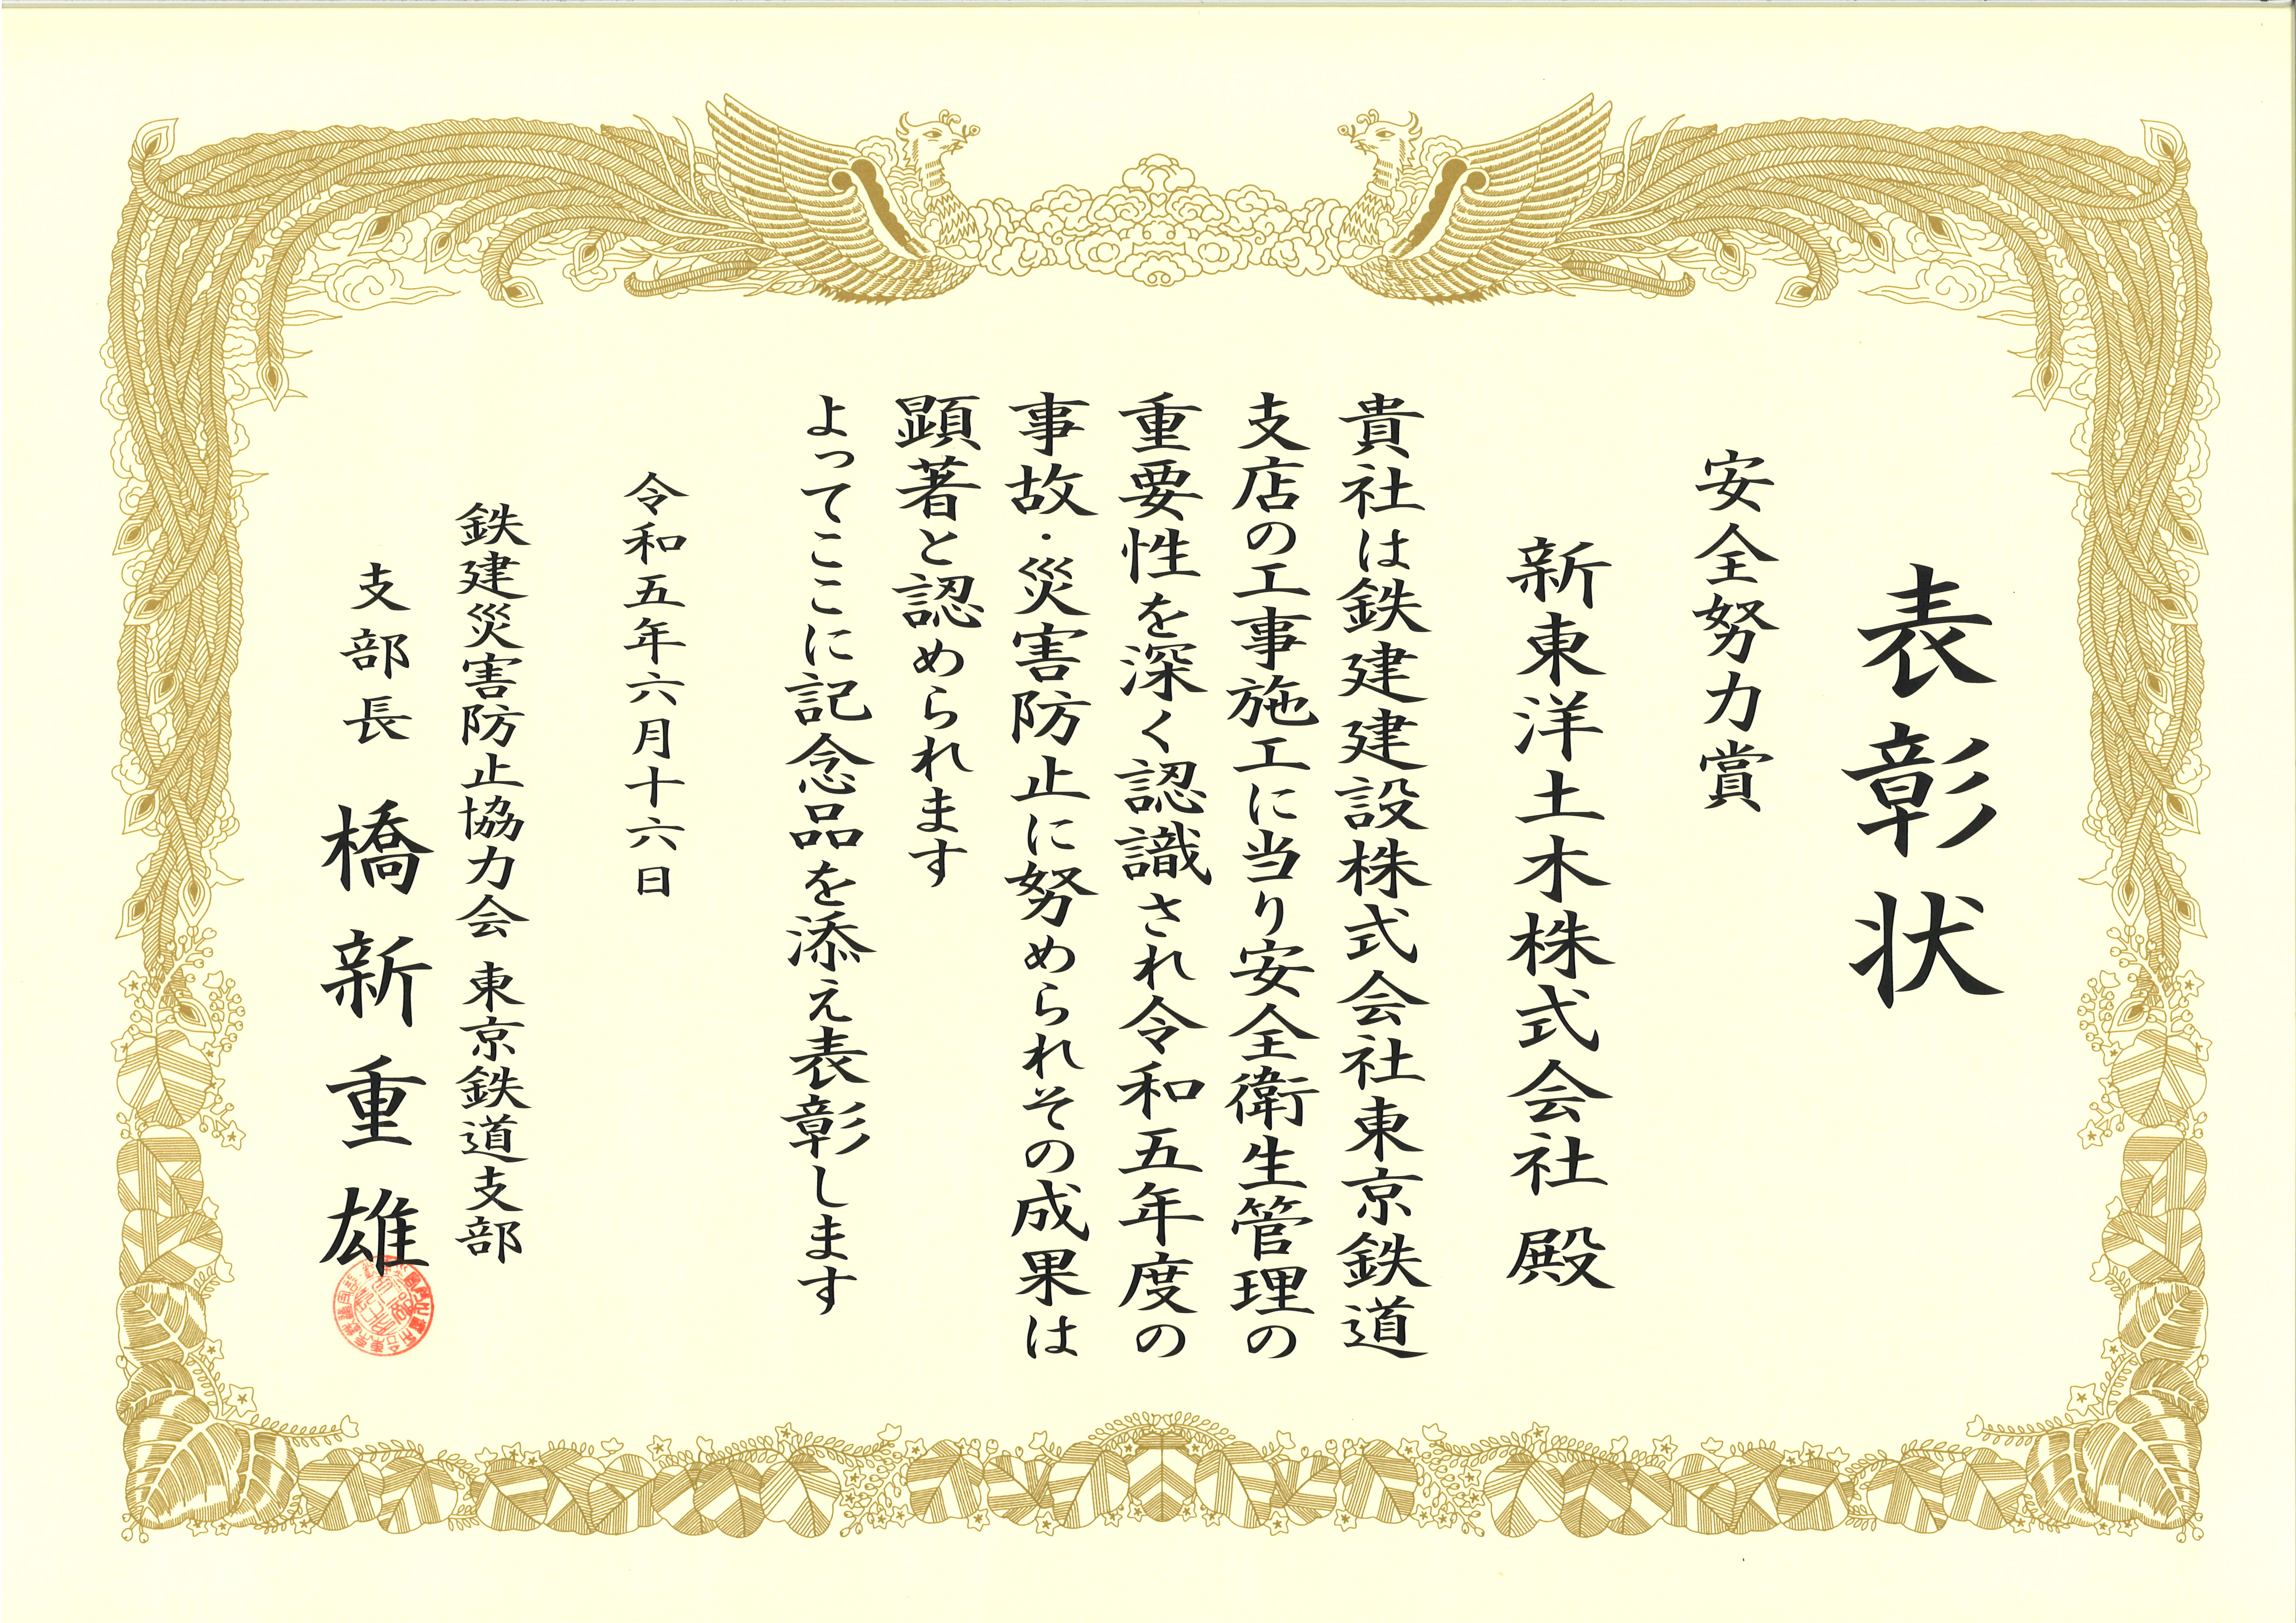 表彰状
安全努力賞
新東洋土木株式会社 殿
貴社は鉄建建設株式会社東京鉄道
支店の工事施工に当り安全衛生管理の
重要性を深く認識され令和五年度の
事故・災害防止に努められその成果は
顕著と認められます
よってここに記念品を添え表彰します
令和五年六月十六日
鉄建災害防止協力会 東京鉄道支部
支部長 橋新重雄